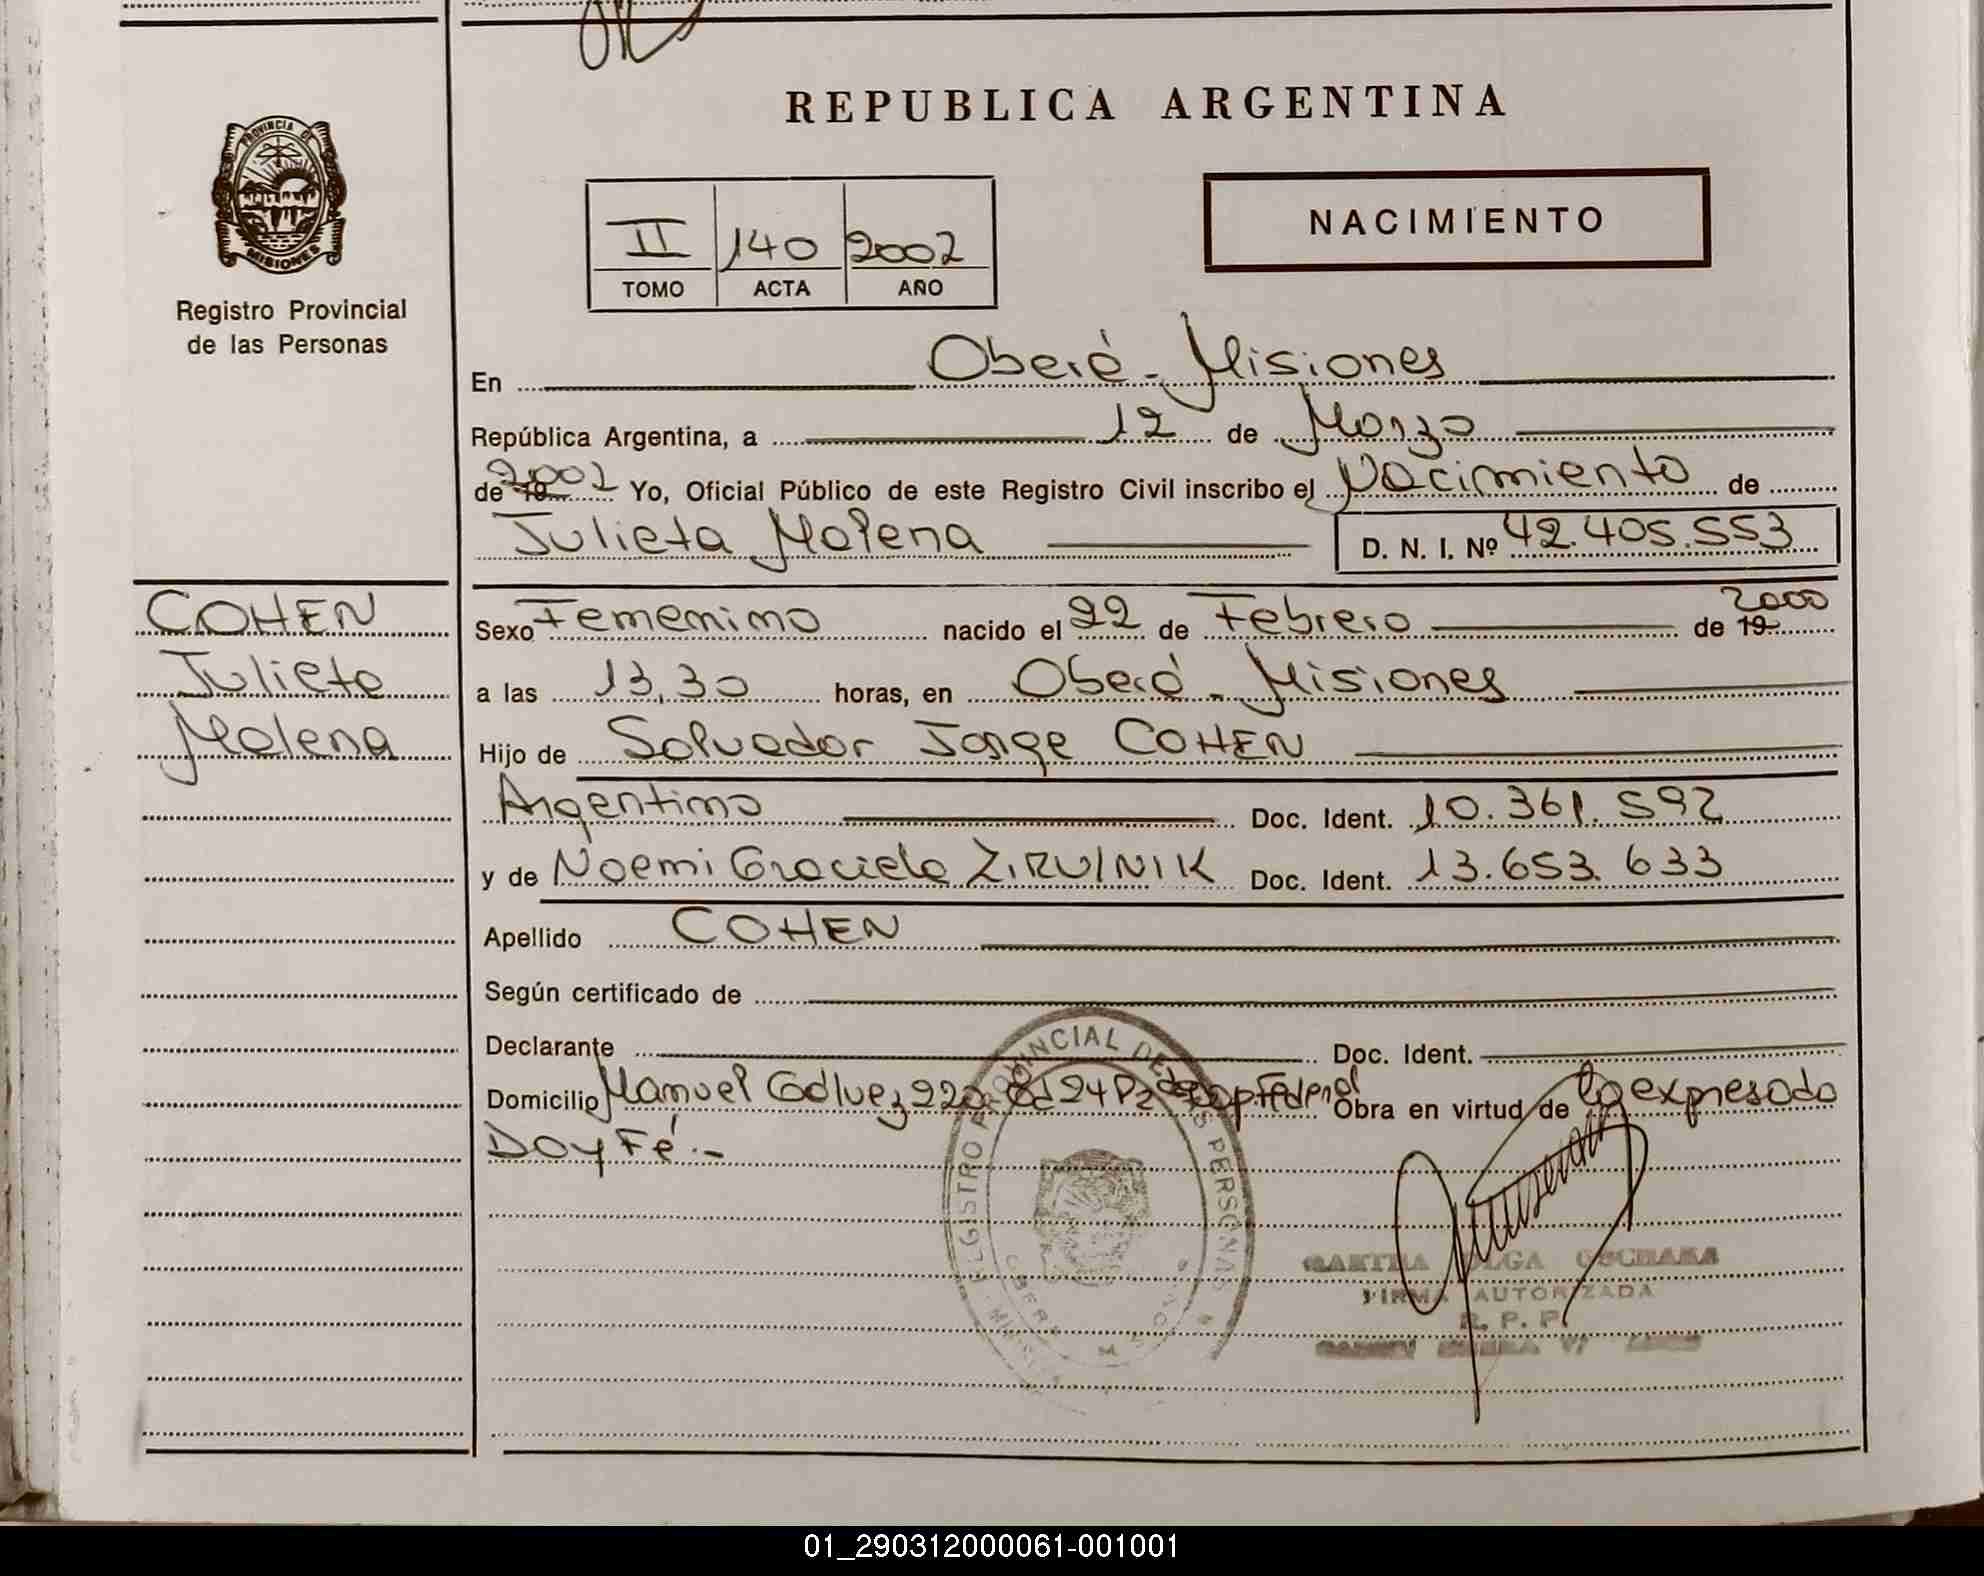 REPUBLICA ARGENTINA
PROVINCIA DE
MISIONES
Registro Provincial
de las Personas
NACIMIENTO
II 140 2002
TOMO ACTA AÑO
En Oberá - Misiones
República Argentina, a 12 de Marzo
de 19 2002 Yo, Oficial Público de este Registro Civil inscribo el Nacimiento de
Julieta Malena D. N. I. Nº 42.405.553
COHEN
Julieta
Malena
Sexo Femenino nacido el 22 de Febrero de 19 2000
a las 13,30 horas, en Oberá - Misiones
Hijo de Salvador Jorge COHEN
Argentino Doc. Ident. 10.361.592
y de Noemi Graciela ZIRULNIK Doc. Ident. 13.653.633
Apellido COHEN
Según certificado de
Declarante Doc. Ident.
Domicilio Manuel Galvez 220 Ed 24 P2 Cap Federal Obra en virtud de lo expresado
DOY Fé.-
REGISTRO PROVINCIAL DE LAS PERSONAS
OLGA
FIRMA AUTORIZADA
R. P. P.
01_290312000061-001001